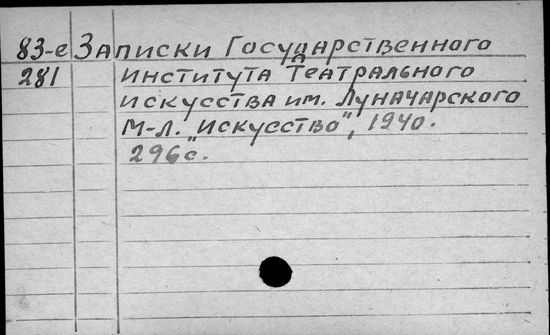 83-е Записки Государственного
281 института Театрального
искусства им. Луначарского
М-Л. "Искусство", 1940.
296 с.